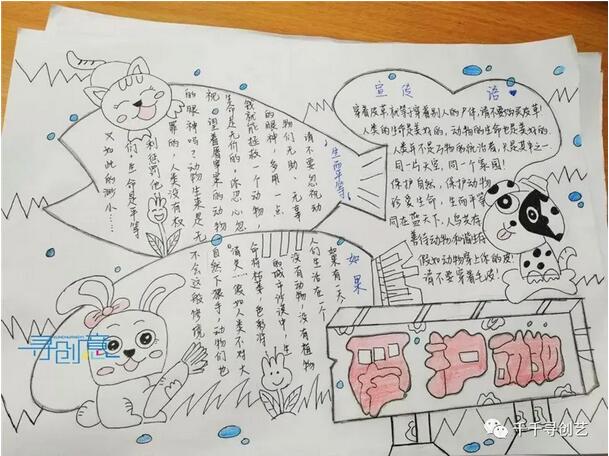 宣传语
穿着皮革,就等于穿着别人的尸体,请不要购买皮革!
人类的生命是美好的,动物的生命也是美好的.
人类并不是动物的统治者,只是其中之一.
同一片天空,同一个家园!
保护自然,保护动物
珍爱生命,生而平等
同在蓝天下,人鸟共存
善待动物和谐结伴
假如动物穿上你的皮!
请不要穿着毛皮!
生而平等
请不要忽视动
物们无助、无辜
的眼神,多用一点
我就能拯救一个动物,
生命是无价的,你忍心忽
视、望着屠宰案的动物
的眼神吗?动物生来是无
罪的,人类没有权
利惩罚他
们,生命是平等
又如此的渺小……
如果
如果有一天,
人们生活在一个
没有动物,没有植物
的城市沙漠中,生
命将枯萎,色彩将
消失……假如人类不对大
自然下狠手,动物们也
不会这般惨境
爱护动
寻创意
千千寻创艺